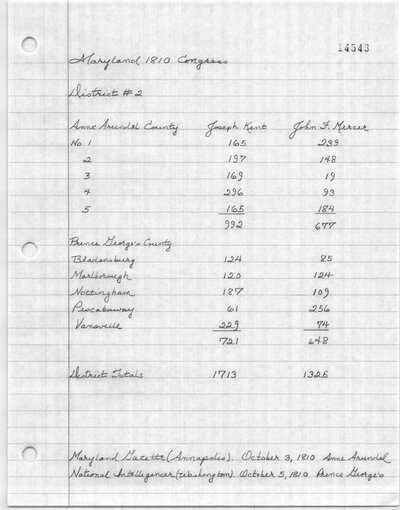 14543
Maryland 1810 Congress
District #2
Anne Arundel County Joseph Kent John F. Mercer
No. 1 165 233
2 197 148
3 169 19
4 296 93
5 165 184
992 677
Prince George's County
Bladensburg 124 85
Marlborough 120 124
Nottingham 187 109
Piscataway 61 256
Vansville 229 74
721 648
District Totals 1713 1325
Maryland Gazette (Annapolis). October 3, 1810 Anne Arundel
National Intelligencer (Washington). October 5, 1810 Prince George's